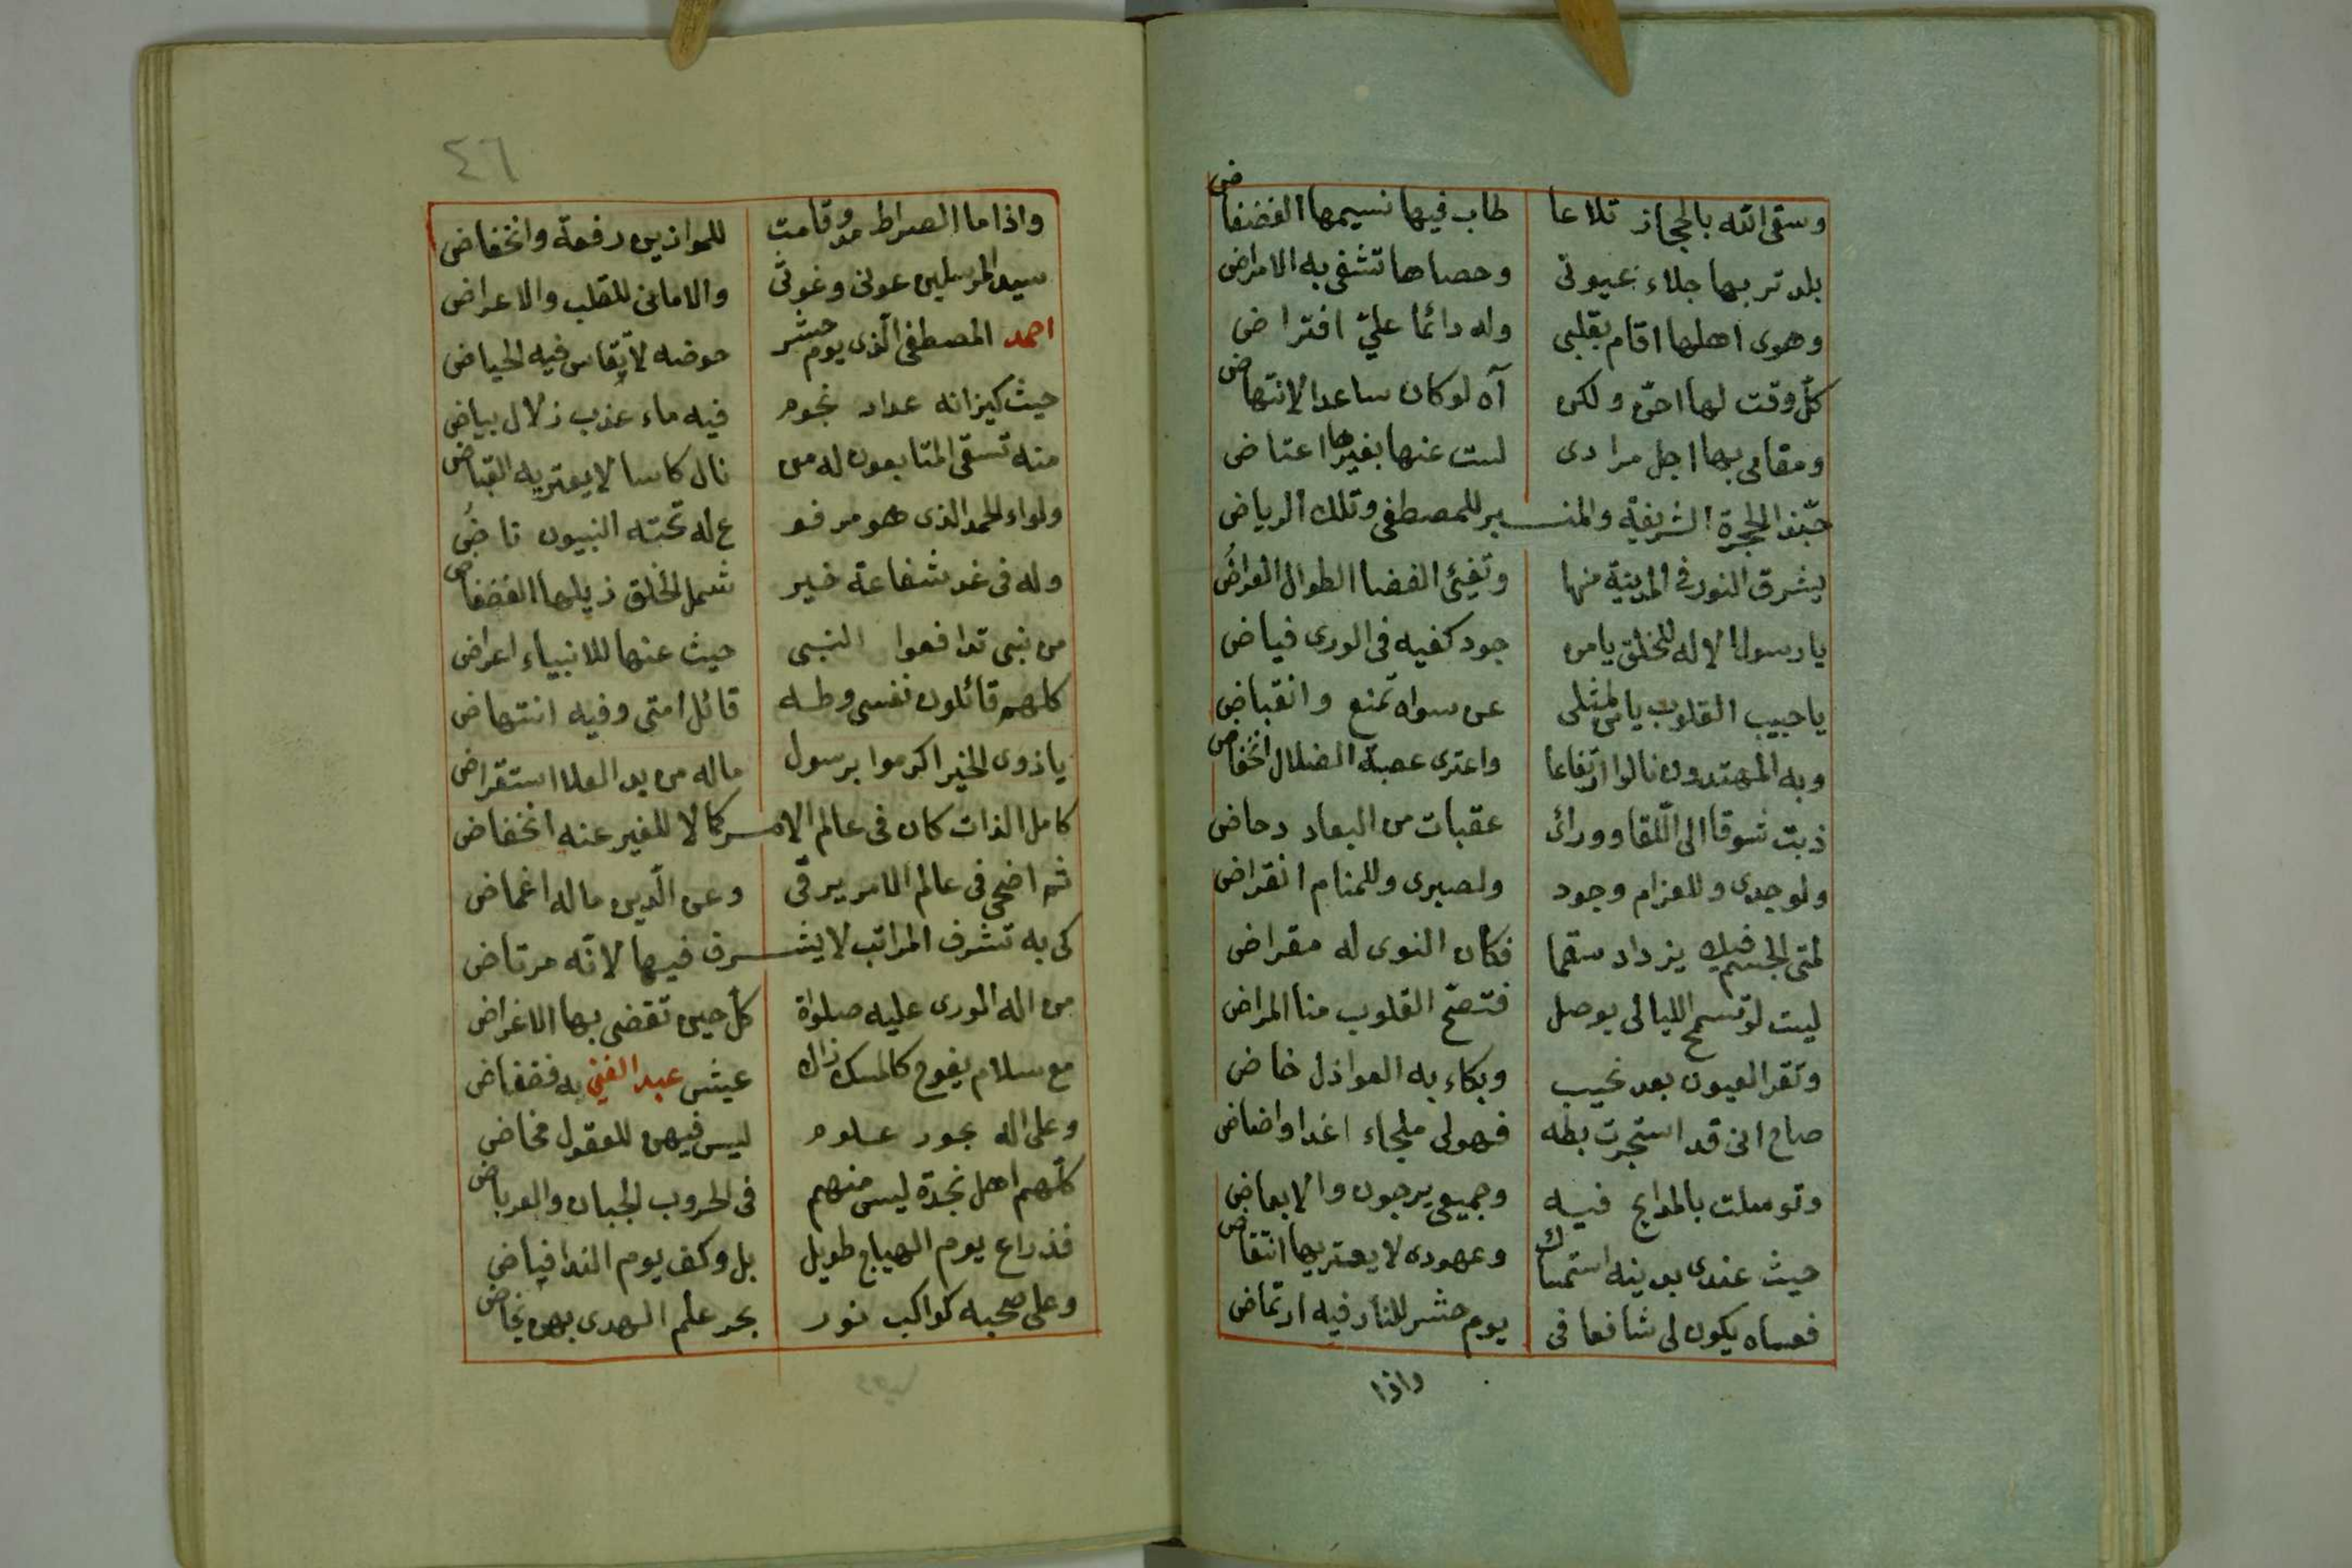 وسقى الله بالحجاز تلاعا طاب فيها نسيمها الفضفاض
بلد تربها جلاء عيونى وحصاها تشفى به الامراض
وهوى اهلها اقام بقلبى وله دائما علىّ افتراض
كلّ وقت لها احنّ ولكن آه لو كان ساعد الانتهاض
ومقامى بها اجل مرادى لست عنها بغيرها اعتاض
حبّذا الحجرة الشريفة والمنبر للمصطفى وتلك الرياض
يشرق النور فى المدينة منها وتضئ الفضا الطوال العراضُ
يا رسول الاله للخلق يا من جود كفيه فى الورى فياض
يا حبيب القلوب يا من لمثلى عن سواه تمنع وانقباض
وبه المهتدون نالوا ارتفاعا واعترى عصبة الضلال انخفاض
ذبت شوقا الى اللّقا وورائى عقبات من البعاد دحاض
ولوجدى وللغرام وجود ولصبرى وللمنام انقراض
لمتى الجسم فيك يزداد سقما فكان النوى له مقراض
ليت لو تسمح الليالى بوصل فتصحّ القلوب منا المراض
وتقر العيون بعد نحيب وبكاء به العواذل خاض
صاح انى قد استجرت بطه فهو لى ملجاء اغدا واضاض
وتوسلت بالمدايح فيه وجميعى يرجون والابعاض
حيث عندى بدينه استمساك وعهوده لا يعتريها انتقاض
فعساه يكون لى شافعا فى يوم حشر للنار فيه ارتماض
واذا
٤٦
واذا ما الصراط مد وقامت للموازين رفعة وانخفاض
سيد المرسلين عونى وغوثى والامانى للقلب والاعراض
احمد المصطفى الّذى يوم حشر حوضه لا يقاس فيه الحياض
حيث كيزانه عداد نجوم فيه ماء عذب زلال بياض
منه تسقى المتابعون له من نال كاسا لا يعتريه القباض
ولواء الحمد الذى هو مرفو ع له تحته النبيون ناضُ
وله فى غد شفاعة خير شمل الخلق ذيلها الفضفاض
من نبى تدافعوا النبى حيث عنها للانبياء اعراض
كلهم قائلون نفسى وطه قائل امتى وفيه انتهاض
يا ذوى الخير اكرموا برسول ماله من يد العلا استقراض
كامل الذات كان فى عالم الامر كمالا للغير عنه انخفاض
ثم اضحى فى عالم الامر يرقى وعن الّدين ماله اغماض
كى به تشرف المراتب لا يشرف فيها لانّه مرتاض
من اله الورى عليه صلواة كلّ حين تقضى بها الاغراض
مع سلام يفوح كالمسك زاك عيش عبد الغني به فضفاض
وعلى اله بحور علوم ليس فيهن للعقول مخاض
كلّهم اهل نجدة ليس منهم فى الحروب الجبان والعرباض
فذراع يوم الهياج طويل بل وكف يوم الندا فياض
وعلى صحبه كواكب نور بحر علم الهدى بهم يخاض